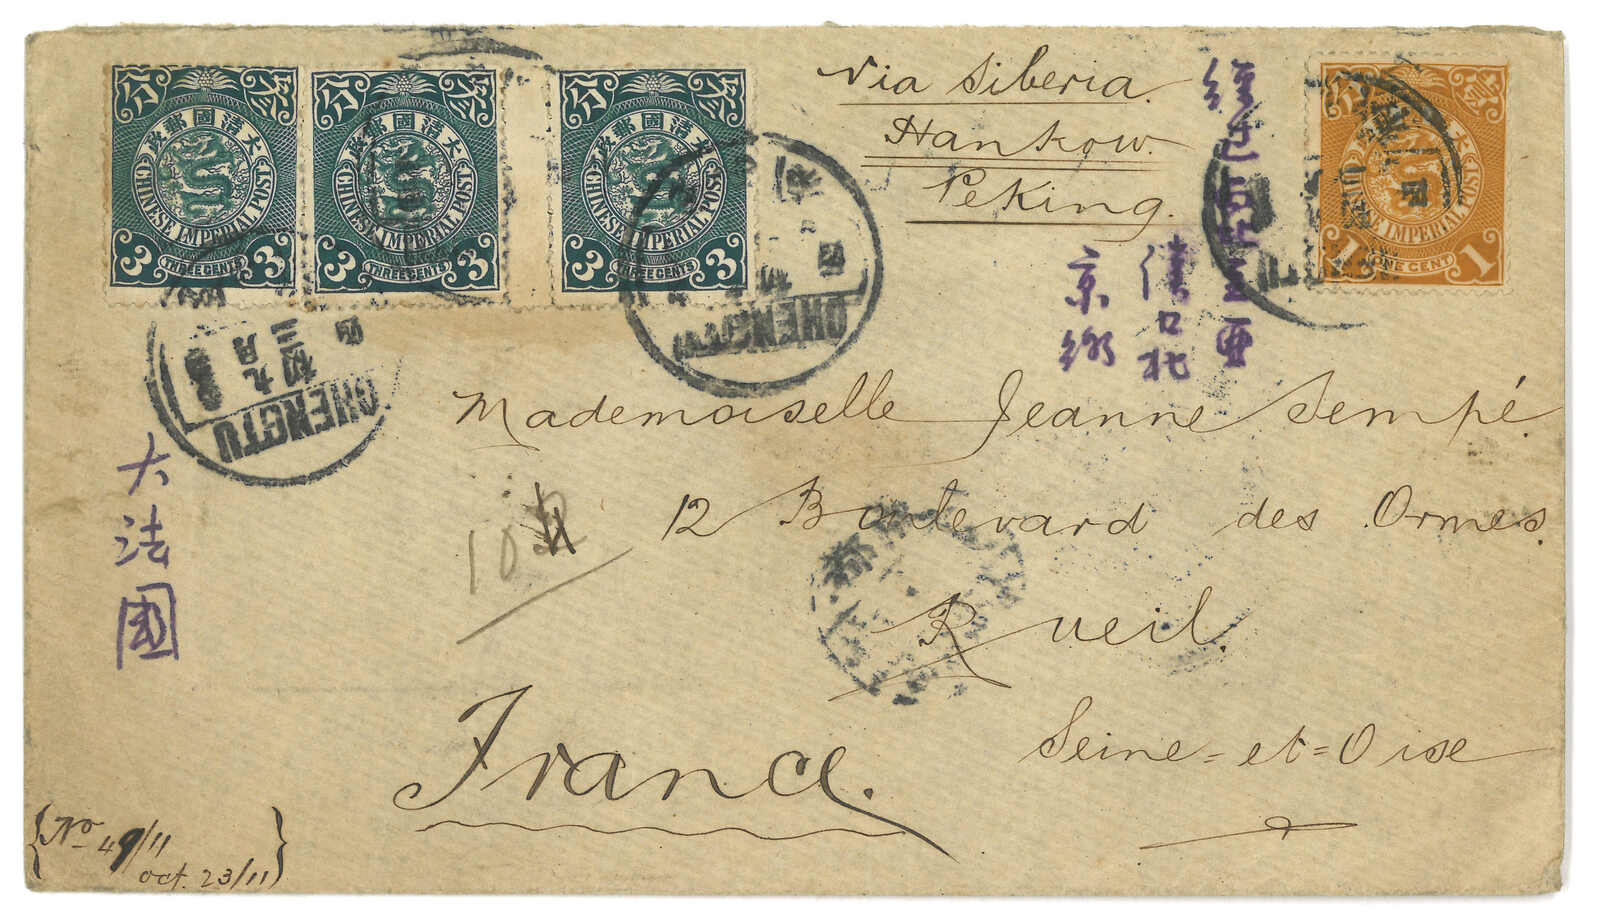 分 叁
大清國郵政
CHINESE IMPERIAL POST
3 THREE CENTS 3
分 叁
大清國郵政
CHINESE IMPERIAL POST
3 THREE CENTS 3
分 叁
大清國郵政
CHINESE IMPERIAL POST
3 THREE CENTS 3
IMPERIAL POST
1 ONE CENT 1
Via Siberia.
Hankow.
Peking.
漢口北
京
CHENGTU
初九
三月
CHENGTU
大法國
Mademoiselle Jeanne Sempé.
12 Boulevard des Ormes.
Rueil.
Seine=et=Oise
France.
No 49/11
oct. 23/11